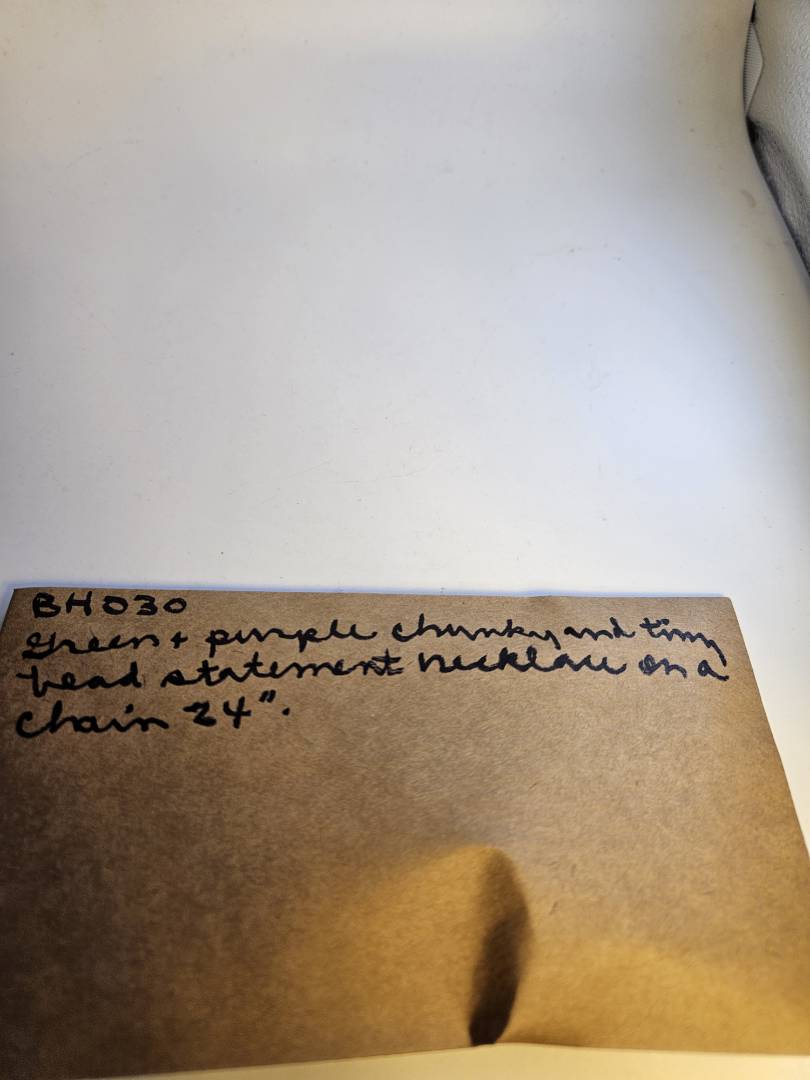 BH030
Green + purple chunky and tiny
bead statement necklace on a
chain 24".